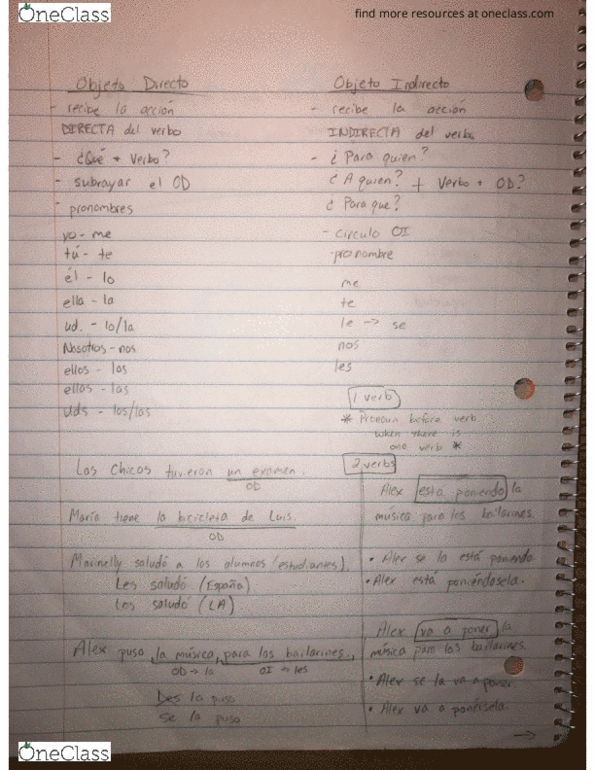 OneClass
find more resources at oneclass.com
Objeto Directo
- recibe la acción
DIRECTA del verbo
- ¿Qué + Verbo?
- subrayar el OD
- pronombres
yo - me
tú - te
él - lo
ella - la
ud. - lo/la
Nosotros - nos
ellos - los
ellas - las
Uds - los/las
Objeto Indirecto
- recibe la acción
INDIRECTA del verbo
- ¿Para quien?
¿A quien? + Verbo + OD?
¿Para que?
- circulo OI
- pronombre
me
te
le -> se
nos
les
1 verb
* Pronoun before verb
when there is
one verb *
Los Chicos tuvieron un examen.
OD
María tiene la bicicleta de Luis.
OD
Marinelly saludó a los alumnos (estudiantes).
Les saludó (España)
Los saludó (LA)
Alex puso la música para los bailarines.
OD -> la OI -> les
Les la puso
se la puso
2 verbs
Alex está poniendo la
música para los bailarines.
• Alex se la está poniendo
• Alex está poniéndosela.
Alex va a poner la
música para los bailarines.
• Alex se la va a poner.
• Alex va a ponérsela.
->
OneClass